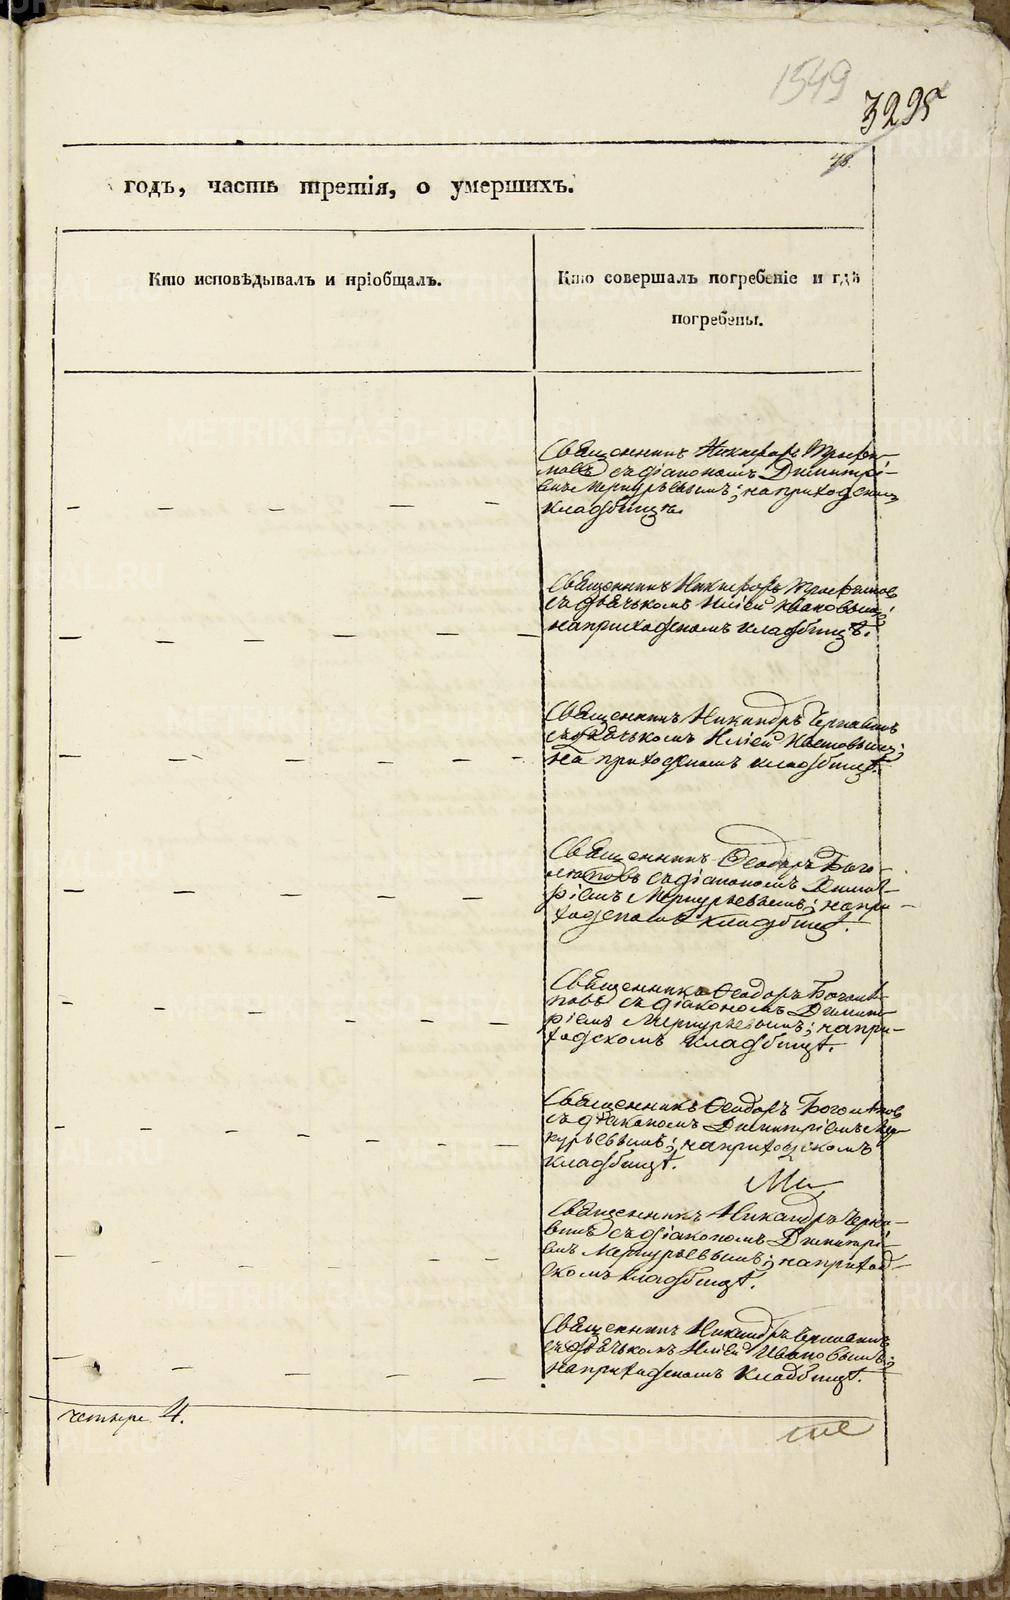 1549
3295
годъ, часть третія, о умершихъ.
Кто исповѣдывалъ и пріобщалъ.
Кто совершалъ погребеніе и гдѣ
погребены.
Священникъ Никифоръ Трофи-
мовъ съ діакономъ Димитрі-
емъ Меркурьевымъ; на приходскомъ
кладбищѣ.
Священникъ Никифоръ Трофимовъ
съ дьячькомъ Иліей Ивановымъ;
на приходскомъ кладбищѣ.
Священникъ Никандръ Чернавинъ
съ дьячькомъ Иліей Ивановымъ;
на приходскомъ кладбищѣ.
Священникъ Ѳеодоръ Бого-
лѣповъ съ діакономъ Димит-
ріемъ Меркурьевымъ; на при-
ходскомъ кладбищѣ.
Священникъ Ѳеодоръ Боголѣ-
повъ съ діакономъ Димит-
ріемъ Меркурьевымъ; на при-
ходскомъ кладбищѣ.
Священникъ Ѳеодоръ Боголѣповъ
съ діакономъ Димитріемъ Мер-
курьевымъ; на приходскомъ
кладбищѣ.
Священникъ Никандръ Черна-
винъ съ діакономъ Димитрі-
емъ Меркурьевымъ; на приход-
скомъ кладбищѣ.
Священникъ Никандръ Чернавинъ
съ дьячькомъ Иліей Ивановымъ;
на приходскомъ кладбищѣ.
четыре 4.